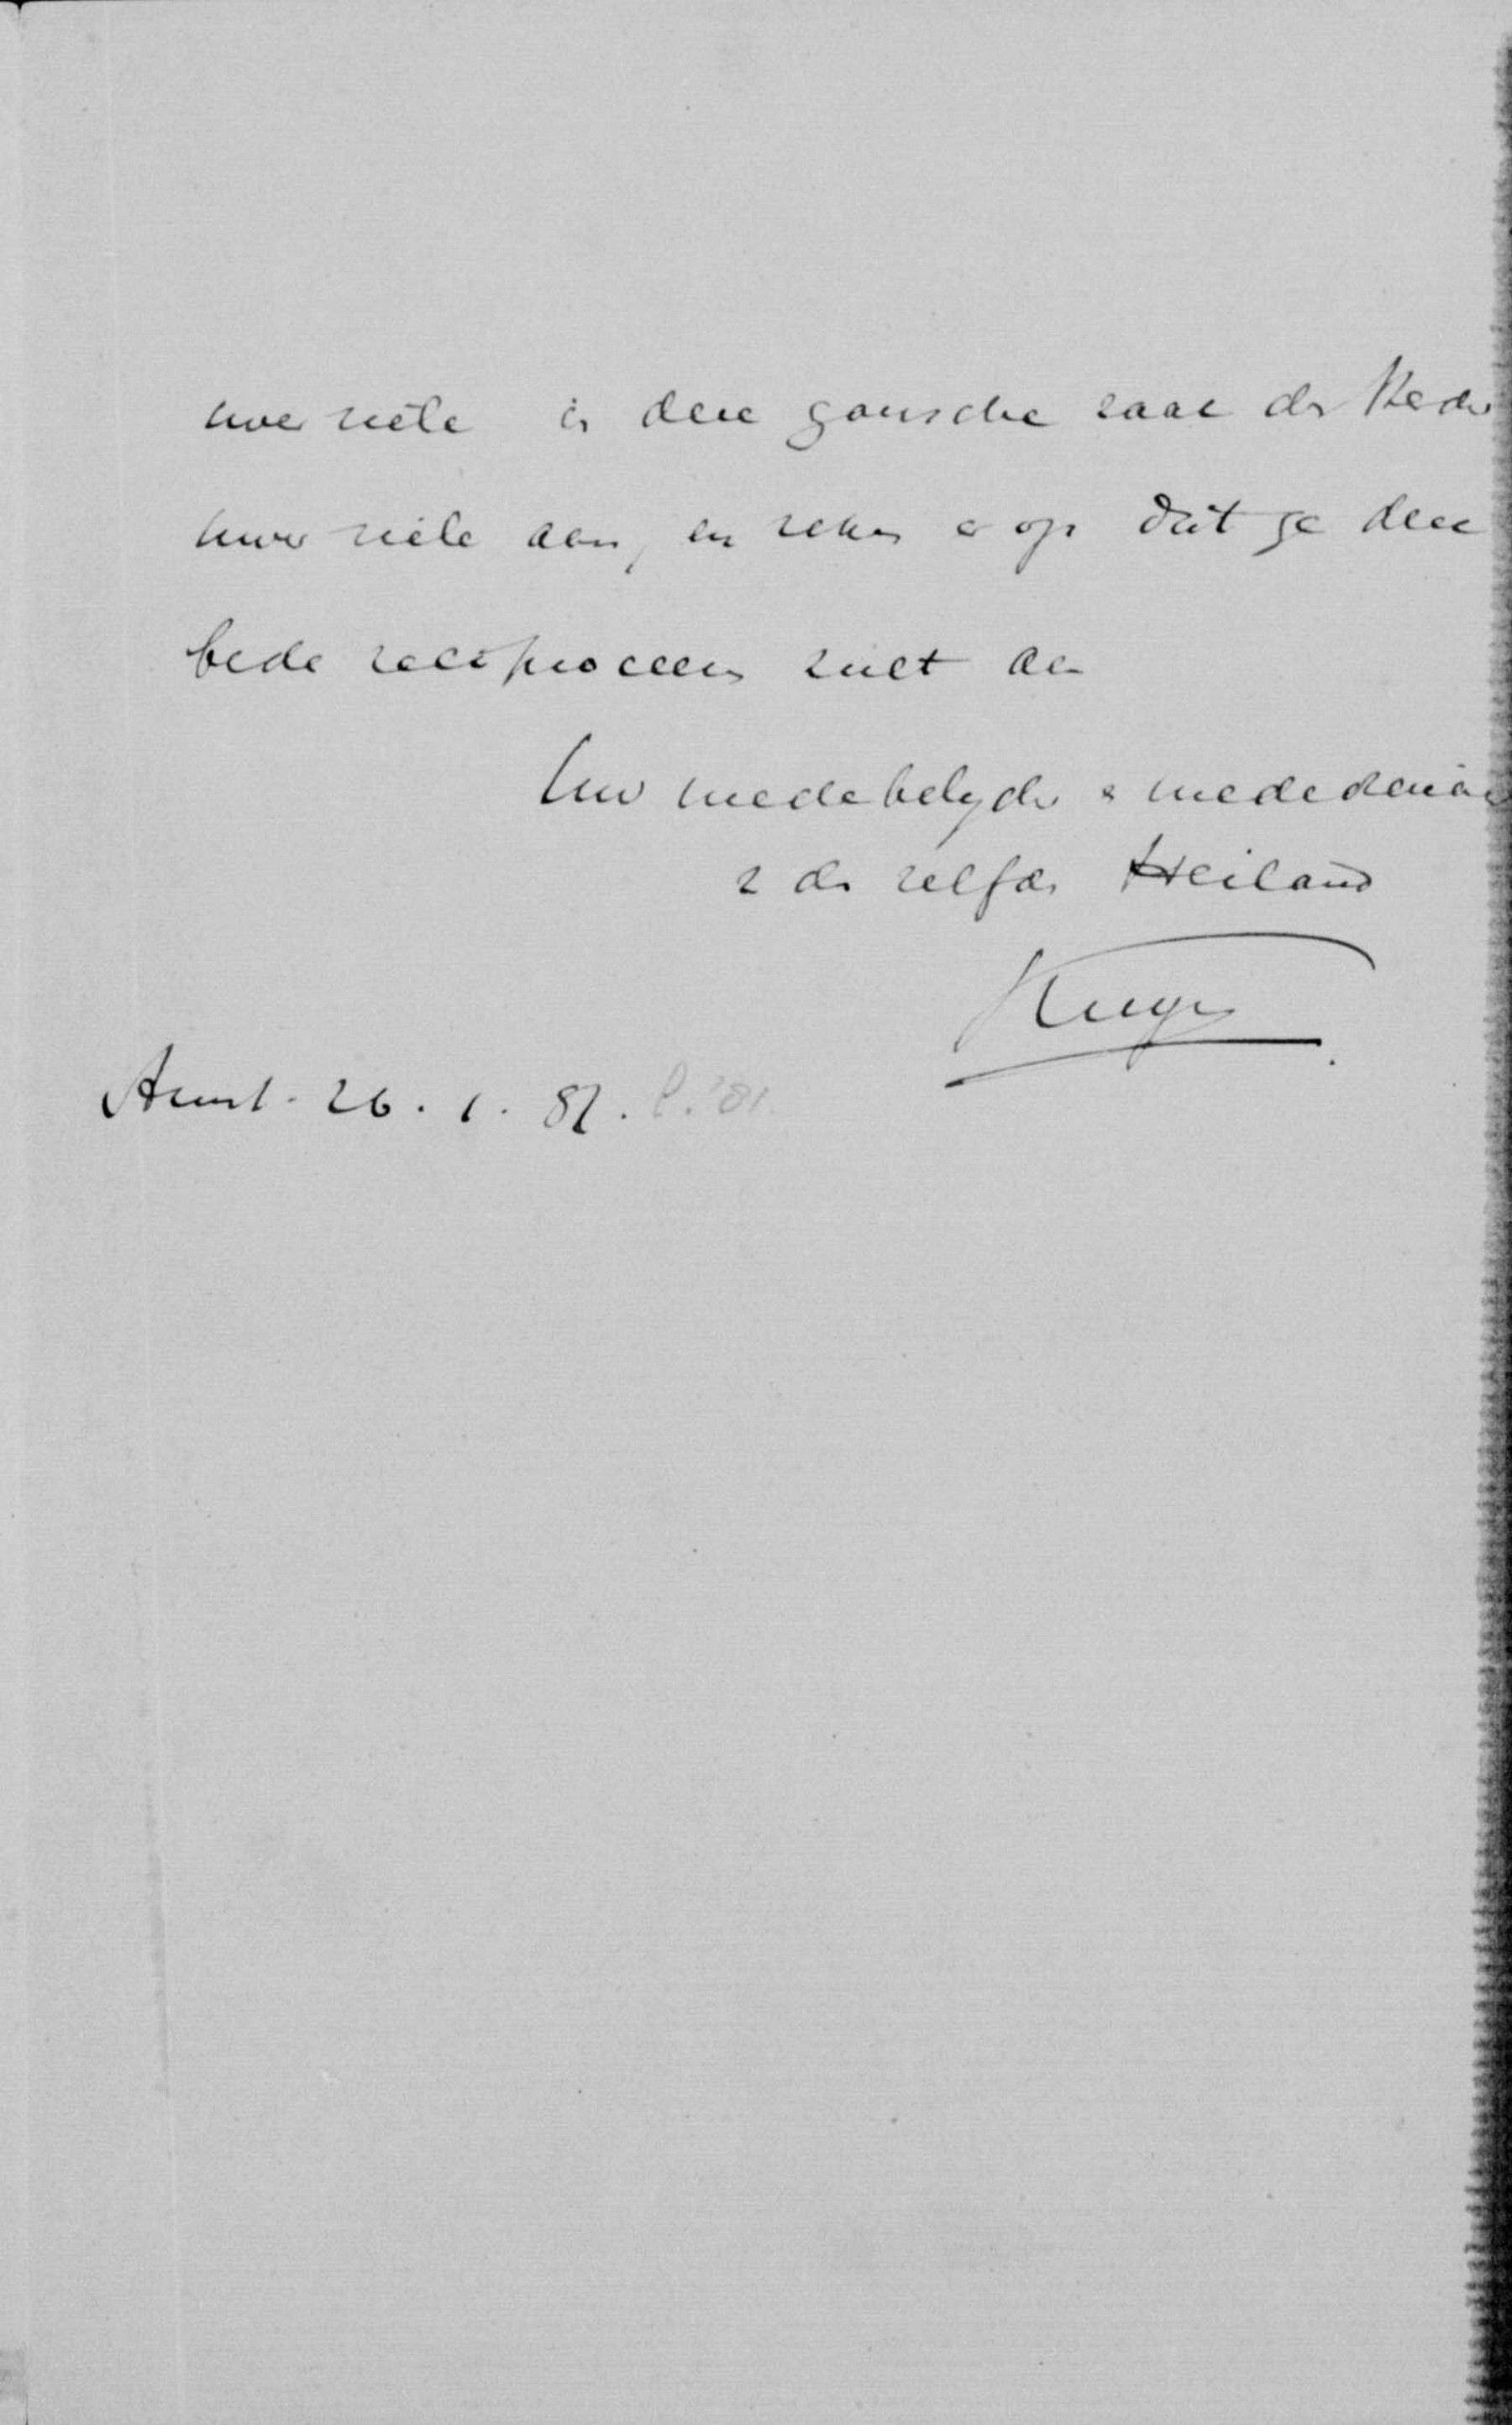 uwer ziele in deze gansche zaak der Kerk
uwer ziele aan, en reken er op dat ge deze
bede reciproceeren zult aan
Uw medebelyder & mededienaar
v. d. zelfden Heiland
Kuyper
Amst. 26.1.87. '81.